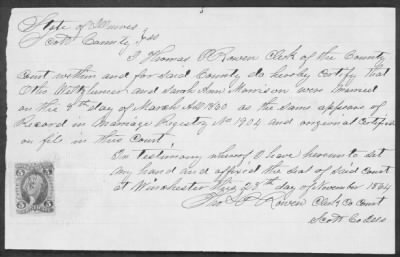 State of Illinois
Scott County } ss
I Thomas O Rowen Clerk of the County
Court within and for said County do hereby certify that
and Sarah Ann Morrison were married
on the 8th day of March AD 18 as the same appears of
Record in Marriage Registry No 1904 and original Certificate
on file in this Court.
In testimony whereof I have hereunto set
my hand and affixed the seal of said Court
at Winchester this 28th day of November 1864
Rowen Clerk Co Court
Scott Co Ills
5 5